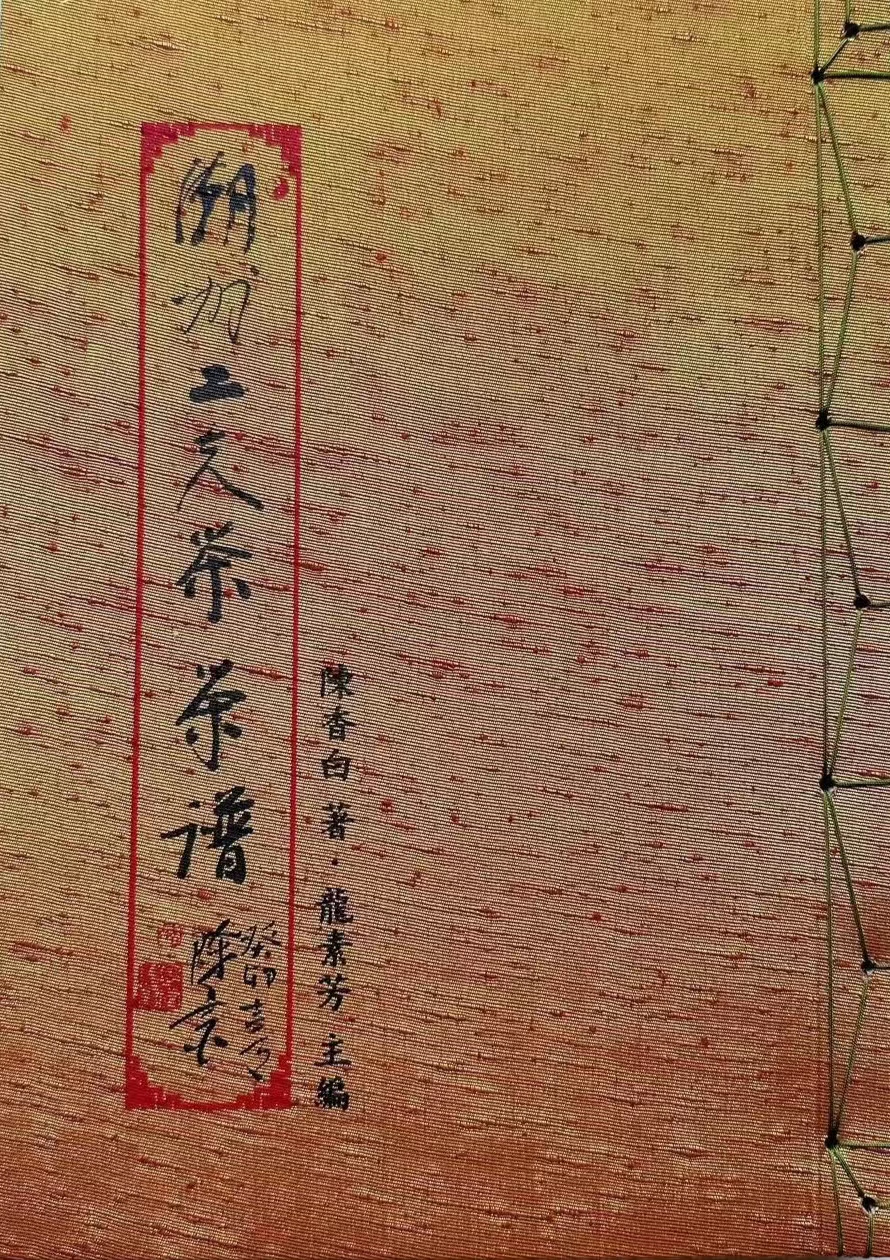 陳香白 著·龍素芳 主編
潮州工夫茶茶谱
癸卯吉